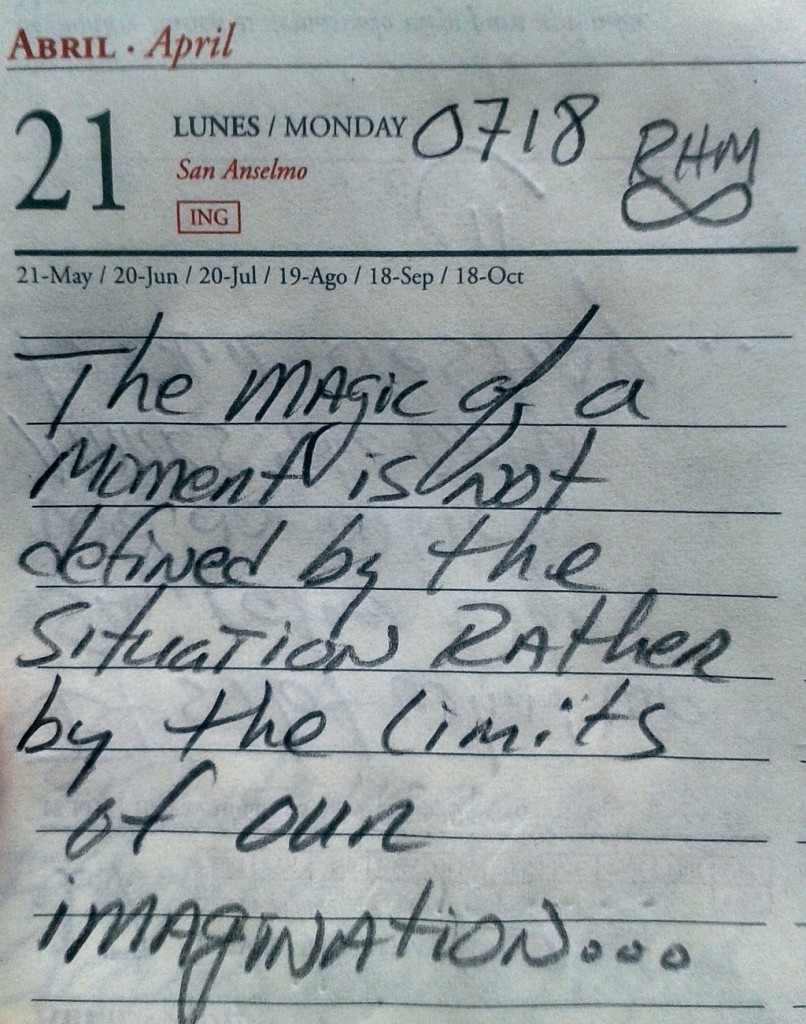 ABRIL · April
21 LUNES / MONDAY 0718 RHM
San Anselmo
ING
21-May / 20-Jun / 20-Jul / 19-Ago / 18-Sep / 18-Oct
The MAgic of a
Moment is not
defined by the
SituATION RAther
by the Limits
of our
iMAgiNAtiON...